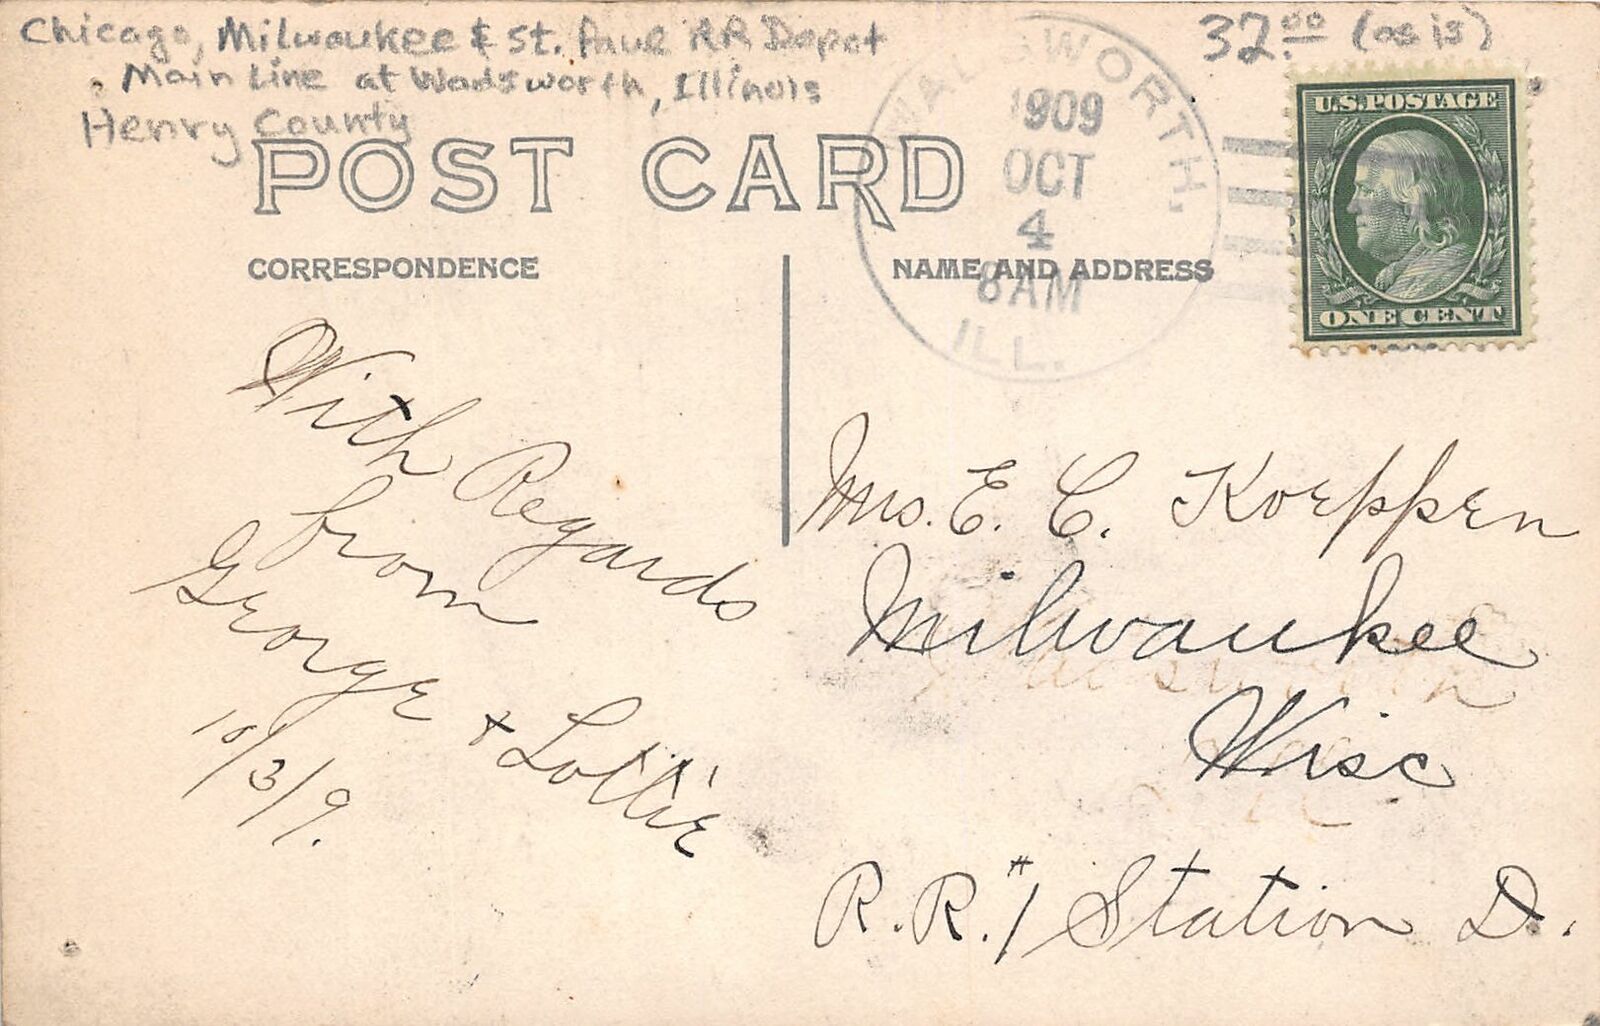 Chicago, Milwaukee & St. Paul RR Depot
Main Line at Wadsworth, Illinois
Henry County
32.00 (as is)
WADSWORTH,
1909
OCT
4
8 AM
ILL.
U.S. POSTAGE
ONE CENT
POST CARD
CORRESPONDENCE
NAME AND ADDRESS
With Regards
from
George & Lottie
10/3/9.
Mrs. E. C. Koeppen
Milwaukee
Wisc
R.R. #1 Station D.